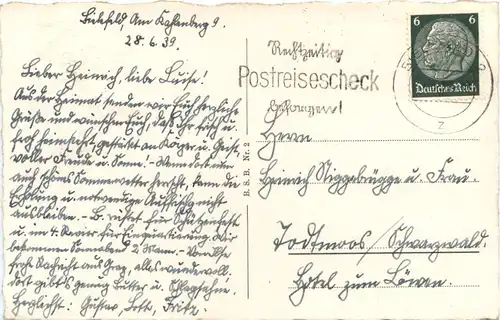 Bielefeld, Am Kahlenberg 9.
28.6.39.
Lieber Heinrich, liebe Luise!
Aus der Heimat senden wir Euch herzliche
Grüße und wünschen Euch, daß ihr frisch u.
froh heimkehrt, gestärkt an Körper u. Geist,
voller Freude u. Sonne! - Wenn dann
auch schönes Sommerwetter herrscht, kann die
Erholung u. notwendige Auffrischung nicht
ausbleiben. - B. rüstet für Schützenfest
u. im 4. Revier für Einquartierung. Wir
bekommen Sonnabend 2 Mann. -
frohe Nachricht aus Graz, alles wieder voll.
dort gibt's genug Butter u. Schlagsahne.
Herzlichst: Gustav, Lott, Fritz.
B. S. B. Nr. 2
Rechtzeitig
Postreisescheck
besorgen!
6 6
Deutsches Reich
z
Herrn
Heinrich Niggebrügge u. Frau.
Todtmoos / Schwarzwald.
Hotel zum Löwen.